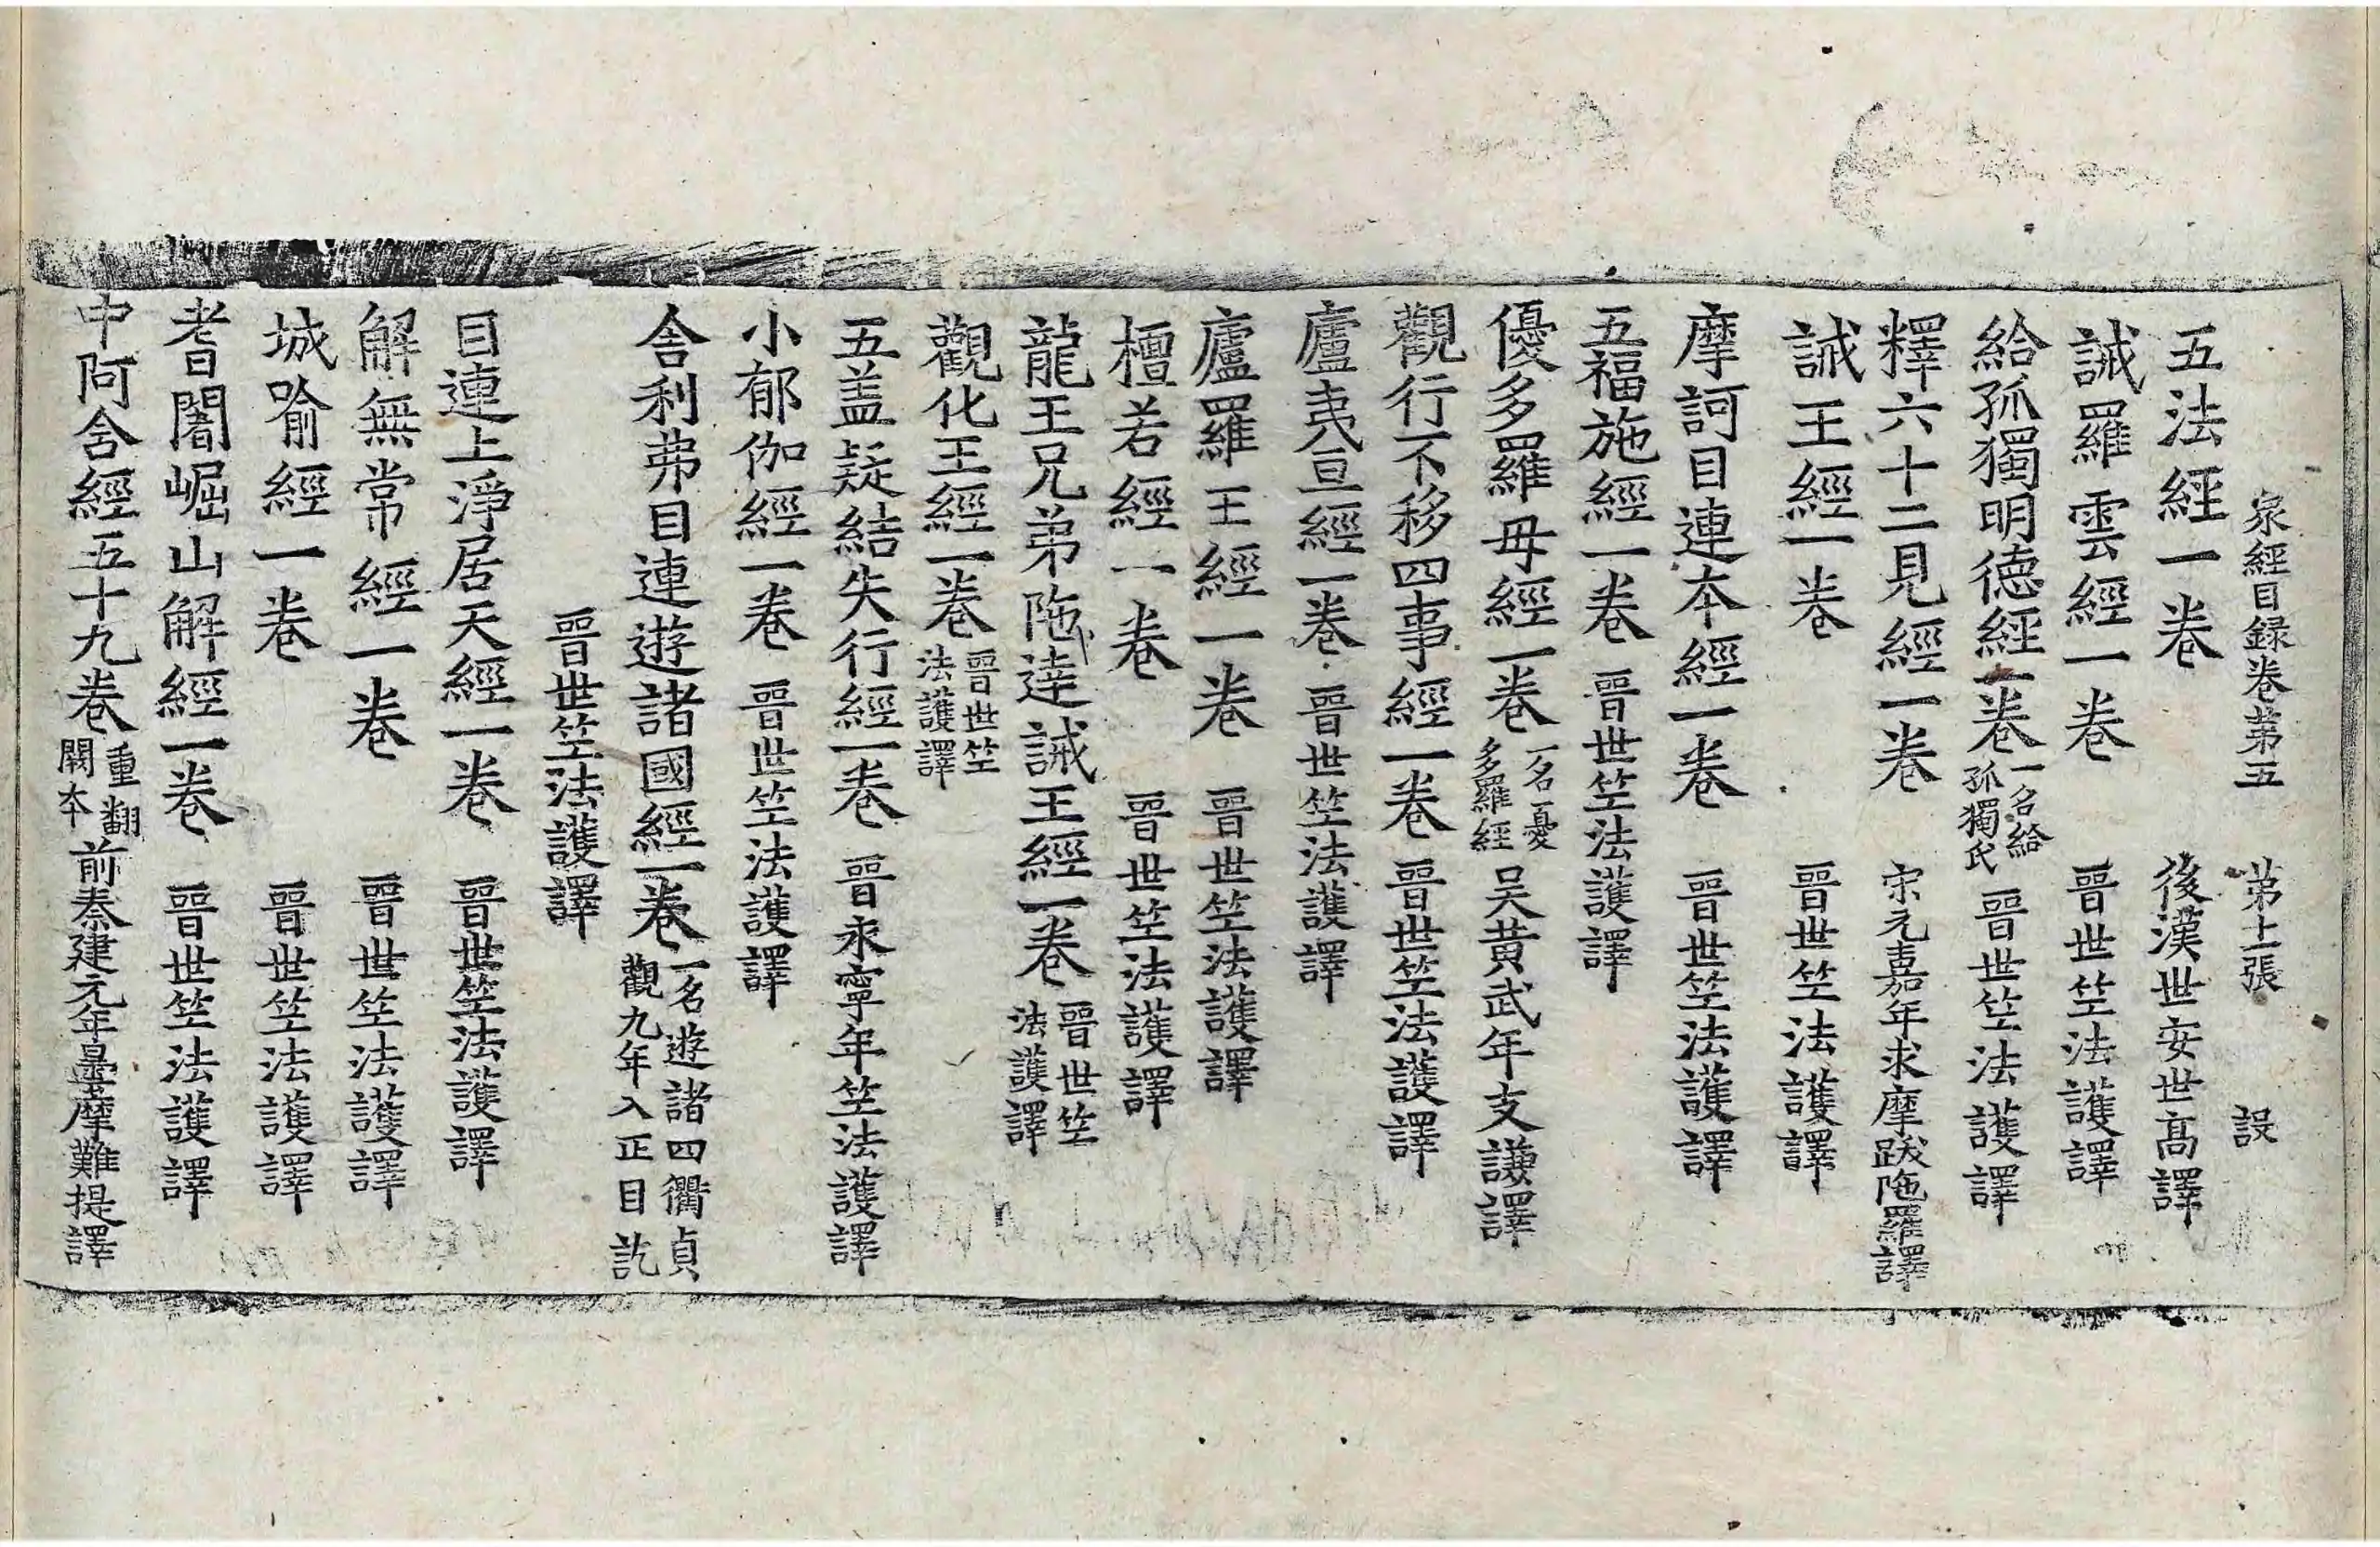 衆經目録卷第五 第十一張 設
五法經一卷 後漢世安世高譯
誡羅雲經一卷 晉世竺法護譯
給孤獨明德經一卷 一名給孤獨氏 晉世竺法護譯
釋六十二見經一卷 宋元嘉年求摩跋陁羅譯
誡王經一卷 晉世竺法護譯
摩訶目連本經一卷 晉世竺法護譯
五福施經一卷 晉世竺法護譯
優多羅母經一卷 一名憂多羅經 吴黄武年支謙譯
觀行不移四事經一卷 晉世竺法護譯
廬夷亘經一卷 晉世竺法護譯
廬羅王經一卷 晉世竺法護譯
檀若經一卷 晉世竺法護譯
龍王兄弟陁達誡王經一卷 晉世竺法護譯
觀化王經一卷 晉世竺法護譯
五盖疑結失行經一卷 晉永寧年竺法護譯
小郁伽經一卷 晉世竺法護譯
舍利弗目連遊諸國經一卷 一名遊諸四衢貞觀九年入正目訖
晉世竺法護譯
目連上淨居天經一卷 晉世竺法護譯
解無常經一卷 晉世竺法護譯
城喻經一卷 晉世竺法護譯
耆闍崛山解經一卷 晉世竺法護譯
中阿舍經五十九卷 重翻闕本 前秦建元年曇摩難提譯